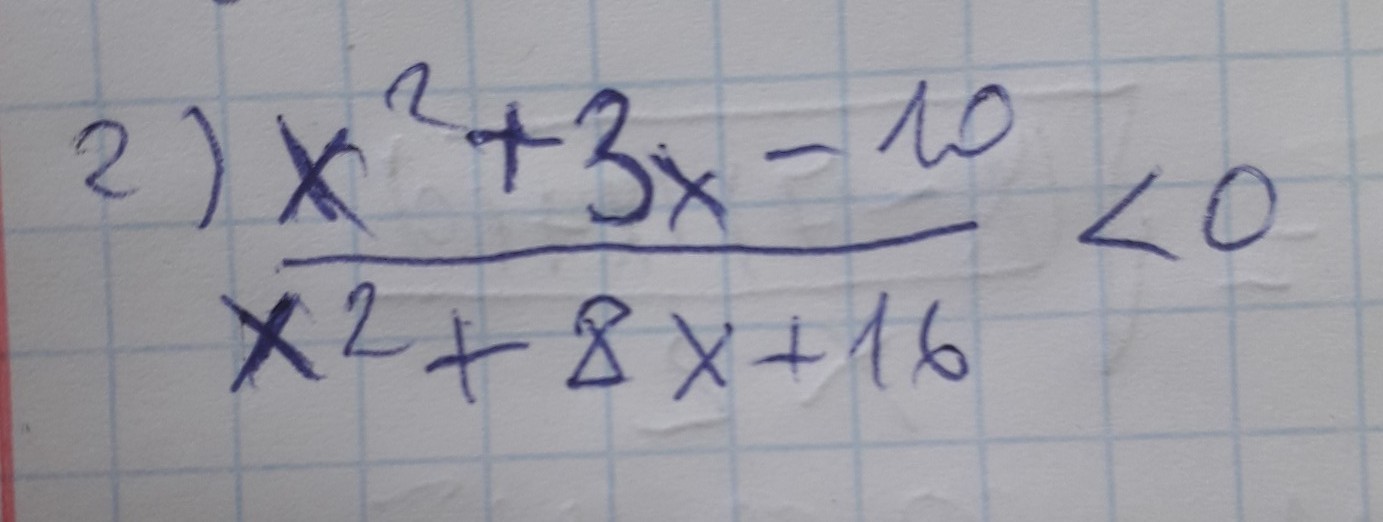 2) x² + 3x - 10 < 0
x² + 8x + 16